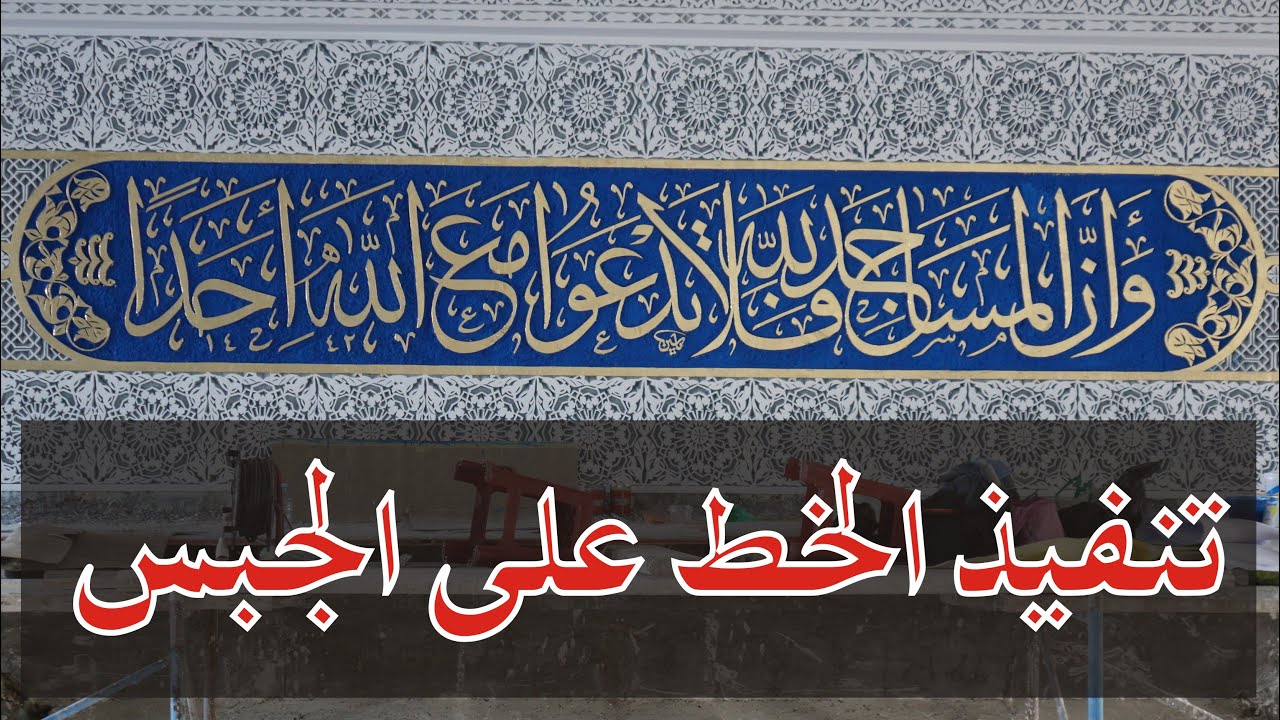 وَأَنَّ الْمَسَاجِدَ لِلَّهِ فَلَا تَدْعُوا مَعَ اللَّهِ أَحَدًا
١٤٤٢
تنفيذ الخط على الجبس